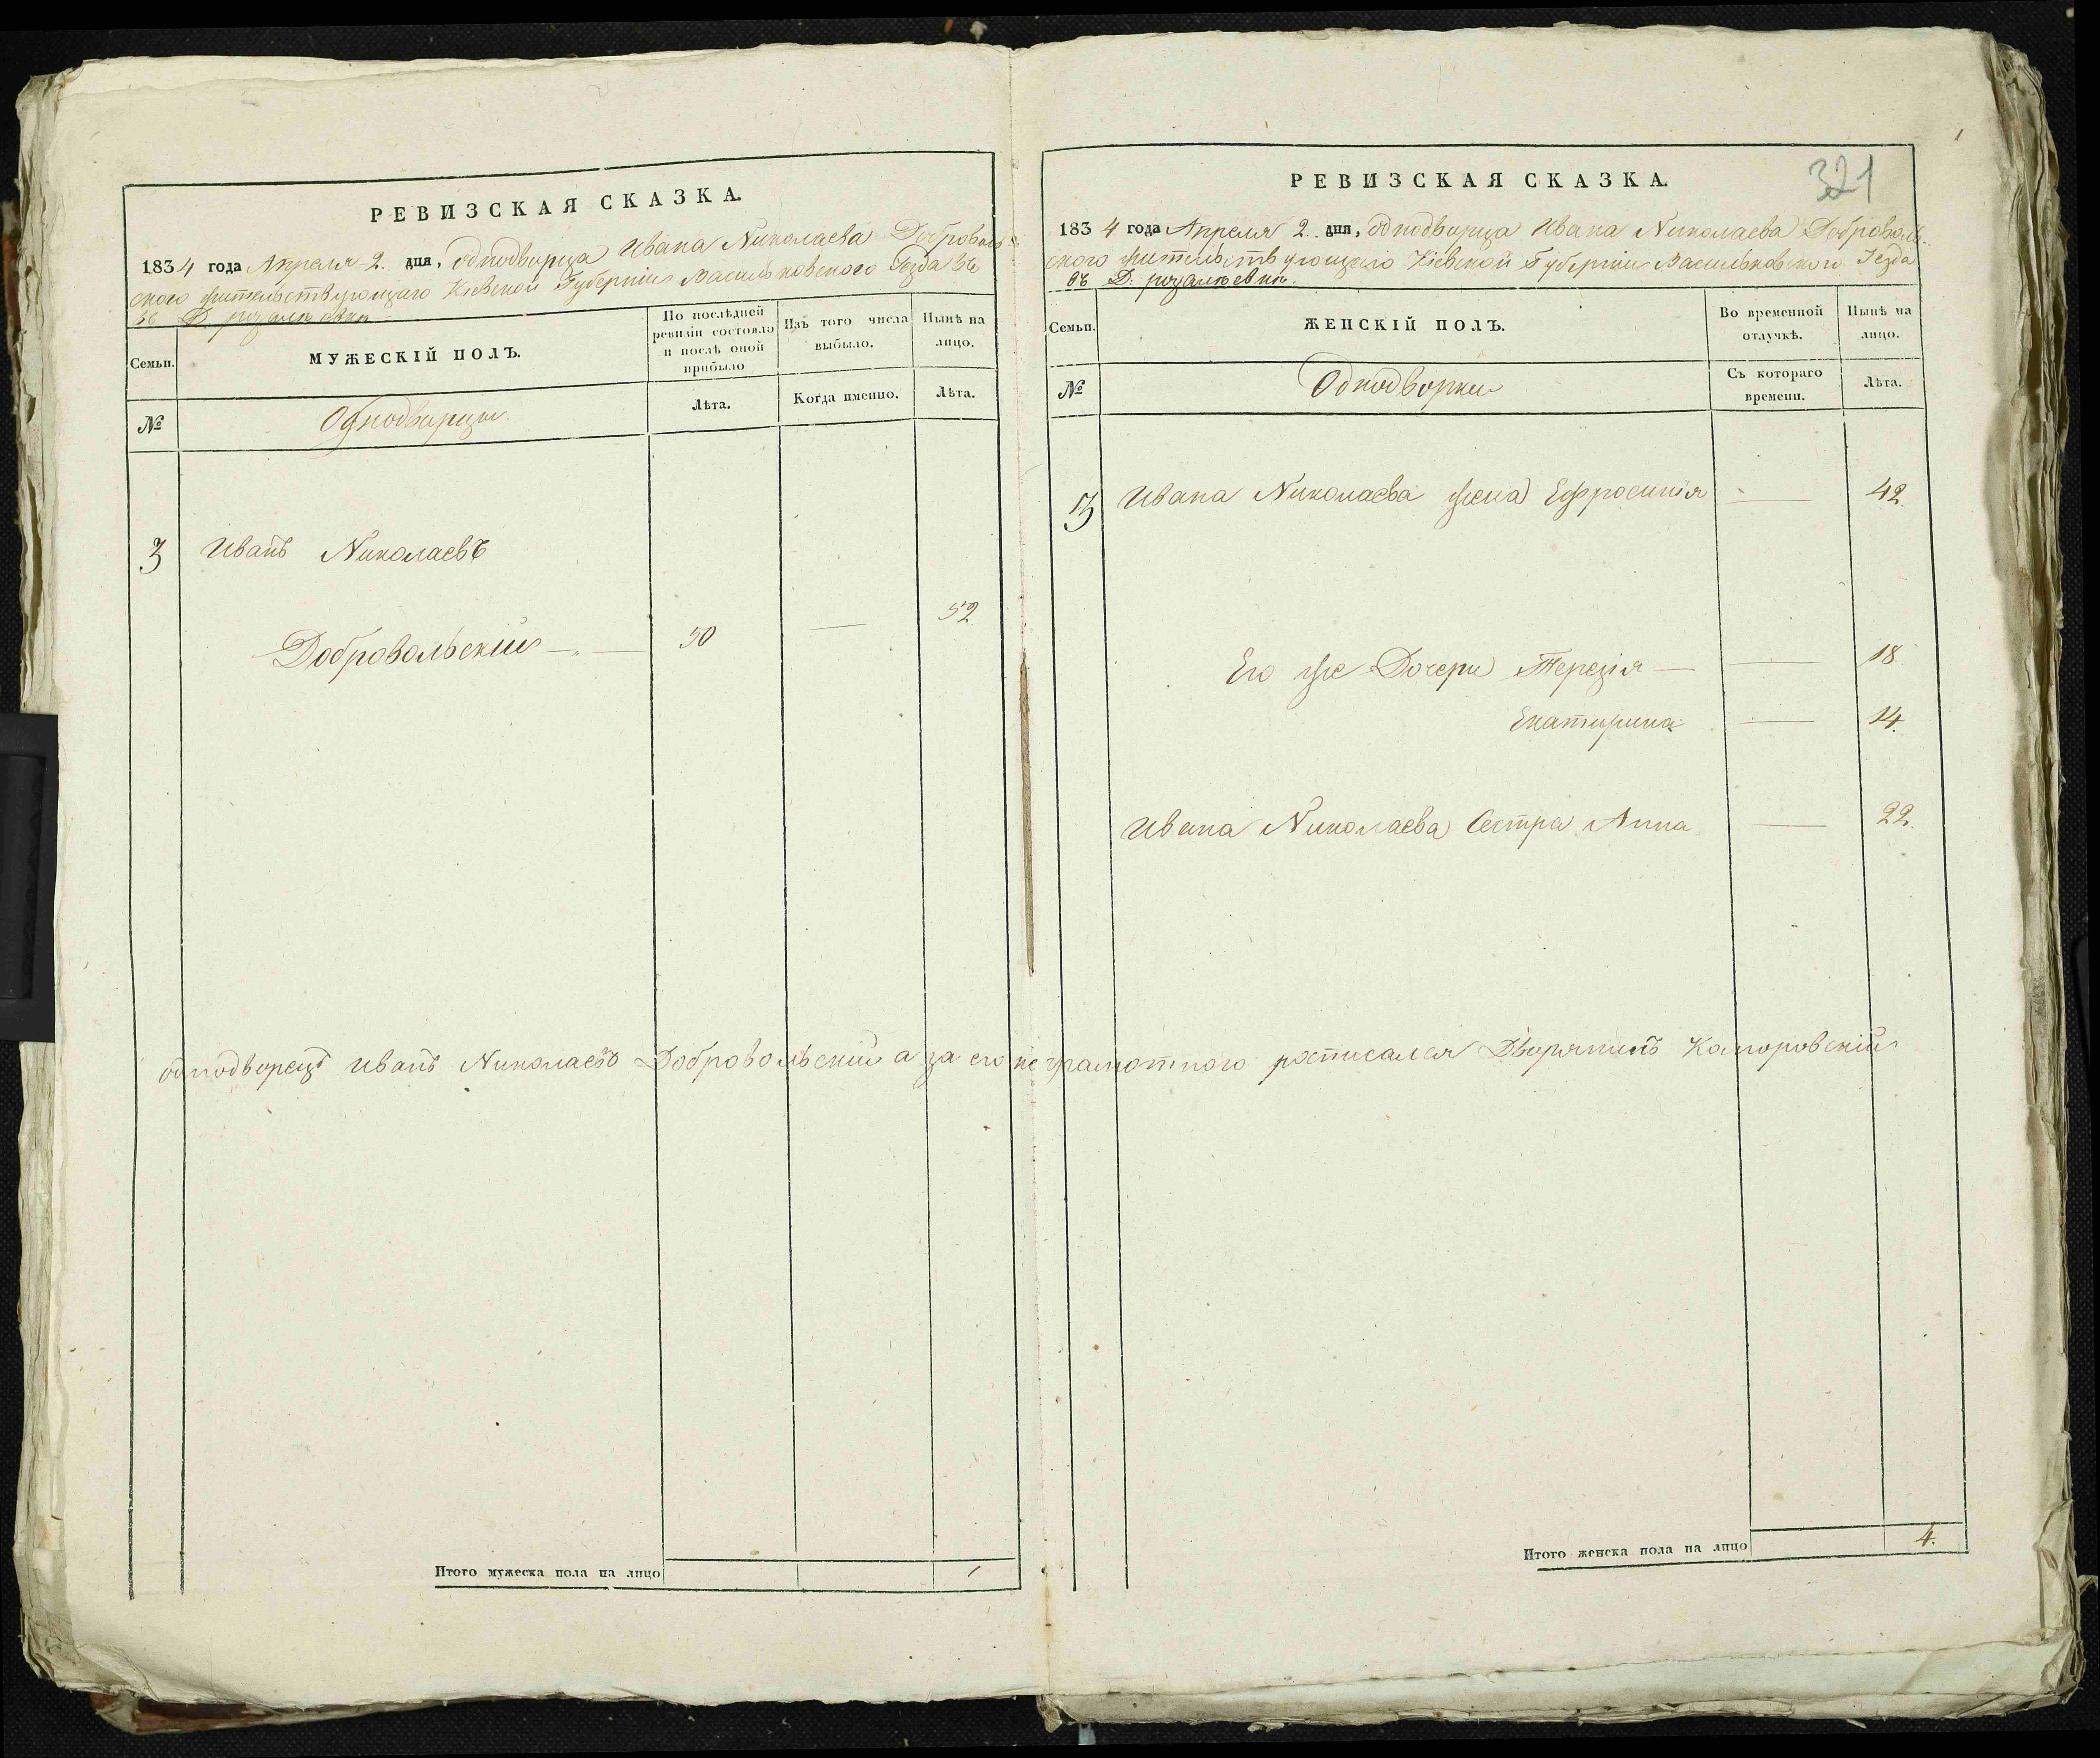 РЕВИЗСКАЯ СКАЗКА.
1834 года Апреля 2. дня, однодворца Ивана Николаева Доброволь-
ского жительствующаго Кіевской Губерніи Васильковского Уезда въ
въ Д. розалюевки
Семьи. МУЖЕСКІЙ ПОЛЪ. По послѣдней ревизіи состояло и послѣ оной прибыло Изъ того числа выбыло. Нынѣ на лицо.
№ Однодворцы. Лѣта. Когда именно. Лѣта.
3 Иванъ Николаевъ
Добровольскій 50 — 52
Итого мужеска пола на лицо 1
321
РЕВИЗСКАЯ СКАЗКА.
1834 года Апреля 2. дня, однодворца Ивана Николаева Доброволь-
ского жительствующаго Кіевской Губерніи Васильковского Уезда
въ Д: розалюевки.
Семьи. ЖЕНСКІЙ ПОЛЪ. Во временной отлучкѣ. Нынѣ на лицо.
№ Однодворки Съ котораго времени. Лѣта.
3 Ивана Николаева жена Ефросинія — 42.
Его же Дочери Терезія — 18.
Екатирина — 14.
Ивана Николаева Сестра Анна — 22.
однодворецъ Иванъ Николаевъ Добровольскій а за его неграмотного росписался Дворянинъ Коморовскій
Итого женска пола на лицо 4.